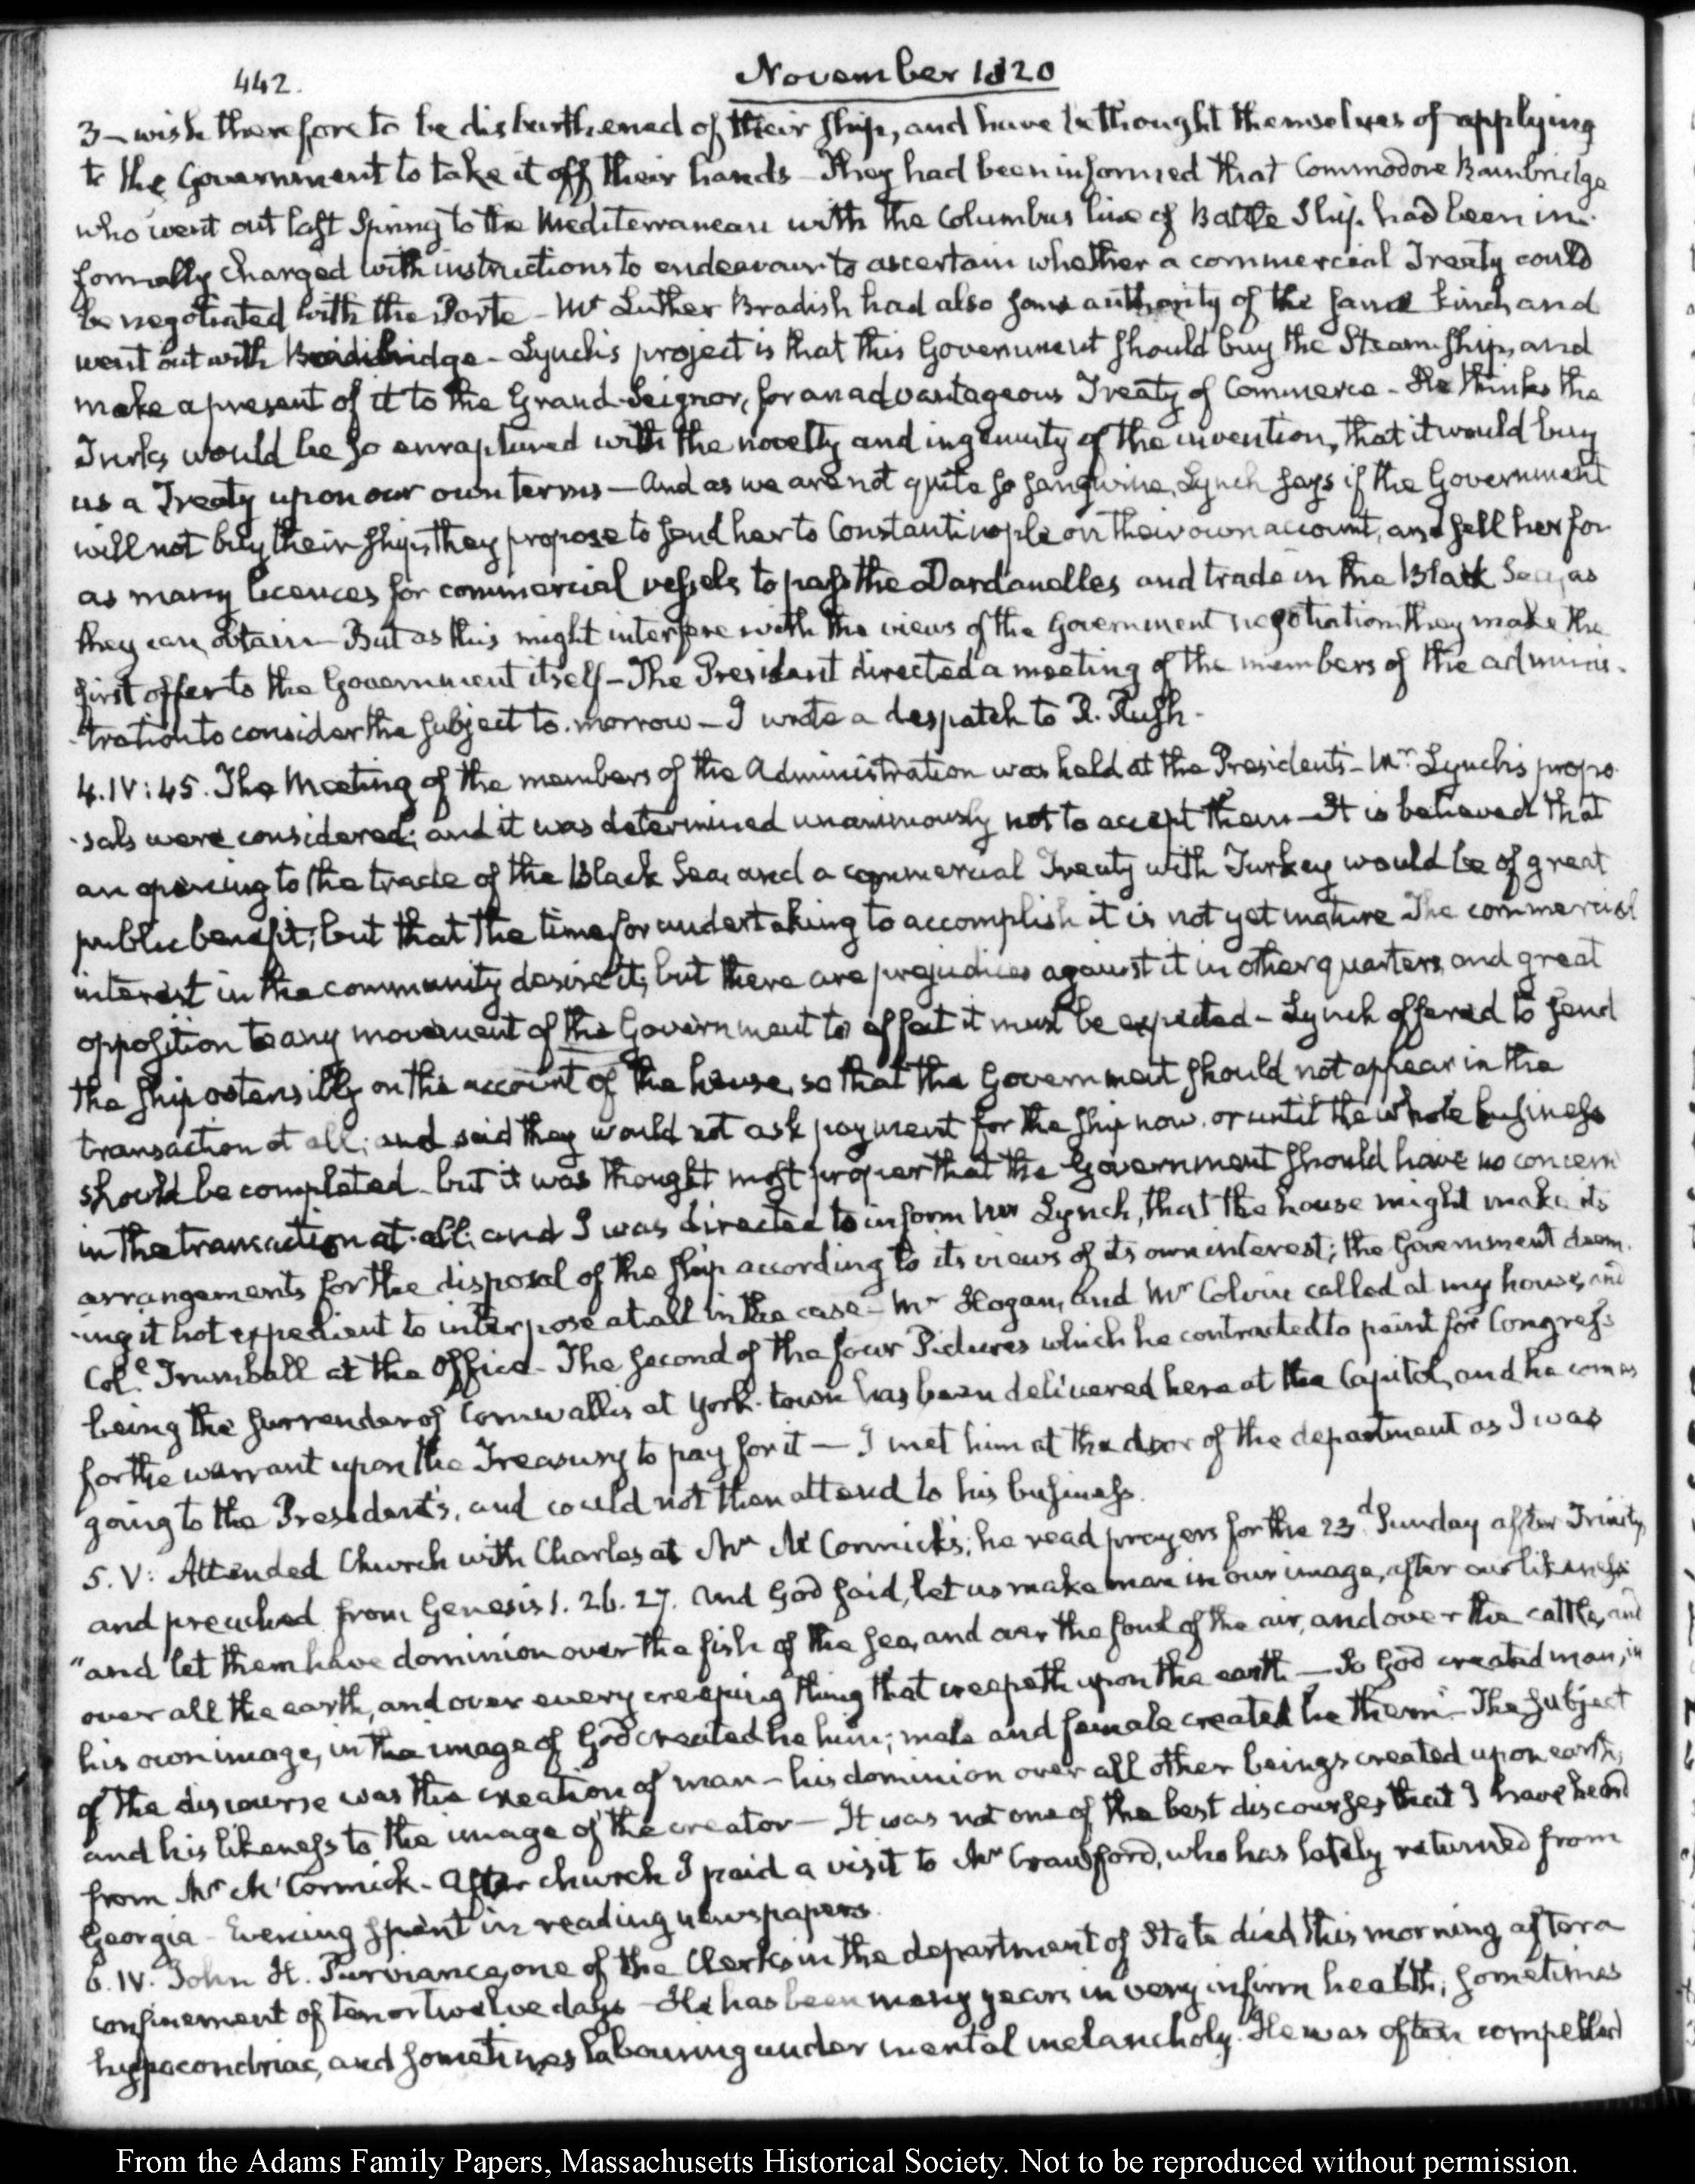 442.
November 1820
3 – wish therefore to be disburthened of their ship, and have bethought themselves of applying
to the Government to take it off their hands – They had been informed that Commodore Bainbridge
who went out last Spring to the Mediterranean with the Columbus line of Battle Ship had been in-
formally charged with instructions to endeavour to ascertain whether a commercial Treaty could
be negotiated with the Porte – Mr Luther Bradish had also some authority of the same kind, and
went out with Bainbridge – Lynch's project is that this Government should buy the Steam-Ship, and
make a present of it to the Grand-Seignor, for an advantageous Treaty of Commerce – He thinks the
Turks, would be so enraptured with the novelty and ingenuity of the invention, that it would buy
us a Treaty upon our own terms – And as we are not quite so sanguine, Lynch says if the Government
will not buy their ship, they propose to send her to Constantinople on their own account, and sell her for
as many licences for commercial vessels to pass the Dardanelles and trade in the Black Sea, as
they can obtain – But as this might interfere with the views of the Government negotiation they make the
first offer to the Government itself – The President directed a meeting of the members of the adminis-
-tration to consider the subject to-morrow – I wrote a despatch to R. Rush.
4. IV: 45. The Meeting of the members of the Administration was held at the President's – Mr. Lynch's propo-
-sals were considered; and it was determined unanimously not to accept them – It is believed that
an opening to the trade of the Black Sea, and a commercial Treaty with Turkey would be of great
public benefit; but that the time for undertaking to accomplish it is not yet mature The commercial
interest in the community desire it; but there are prejudices against it in other quarters, and great
opposition to any movement of the Government to effect it must be expected – Lynch offered to send
the ship ostensibly on the account of the house, so that the Government should not appear in the
transaction at all; and said they would not ask payment for the ship now, or until the whole business
should be completed – but it was thought most proper that the Government should have no concern
in the transaction at all; and I was directed to inform Mr Lynch, that the house might make its
arrangements for the disposal of the ship according to its views of its own interest; the Government deem-
-ing it not expedient to interpose at all in the case – Mr Hogan, and Mr Colvin called at my house, and
Col. Trumball at the Office – The second of the four Pictures which he contracted to paint for Congress
being the surrender of Cornwallis at York-town has been delivered here at the Capitol, and he comes
for the warrant upon the Treasury to pay for it – I met him at the door of the department as I was
going to the President's, and could not then attend to his business.
5. V: Attended Church with Charles at Mr McCormick's; he read prayers for the 23d. Sunday after Trinity,
and preached from Genesis 1. 26. 27. And God said, let us make man in our image, after our likeness
"and let them have dominion over the fish of the sea, and over the foul of the air, and over the cattle, and
over all the earth, and over every creeping thing that creepeth upon the earth – So God created man, in
his own image, in the image of God created he him; male and female created he them" – The subject
of the discourse was the creation of man – his dominion over all other beings created upon earth,
and his likeness to the image of the creator – It was not one of the best discourses that I have heard
from Mr McCormick – After church I paid a visit to Mr Crawford, who has lately returned from
Georgia – Evening spent in reading newspapers.
6. IV. John H. Purviance, one of the Clerks in the department of State died this morning after a
confinement of ten or twelve days – He has been many years in very infirm health; sometimes
hypocondriac, and sometimes labouring under mental melancholy. He was often compelled
From the Adams Family Papers, Massachusetts Historical Society. Not to be reproduced without permission.